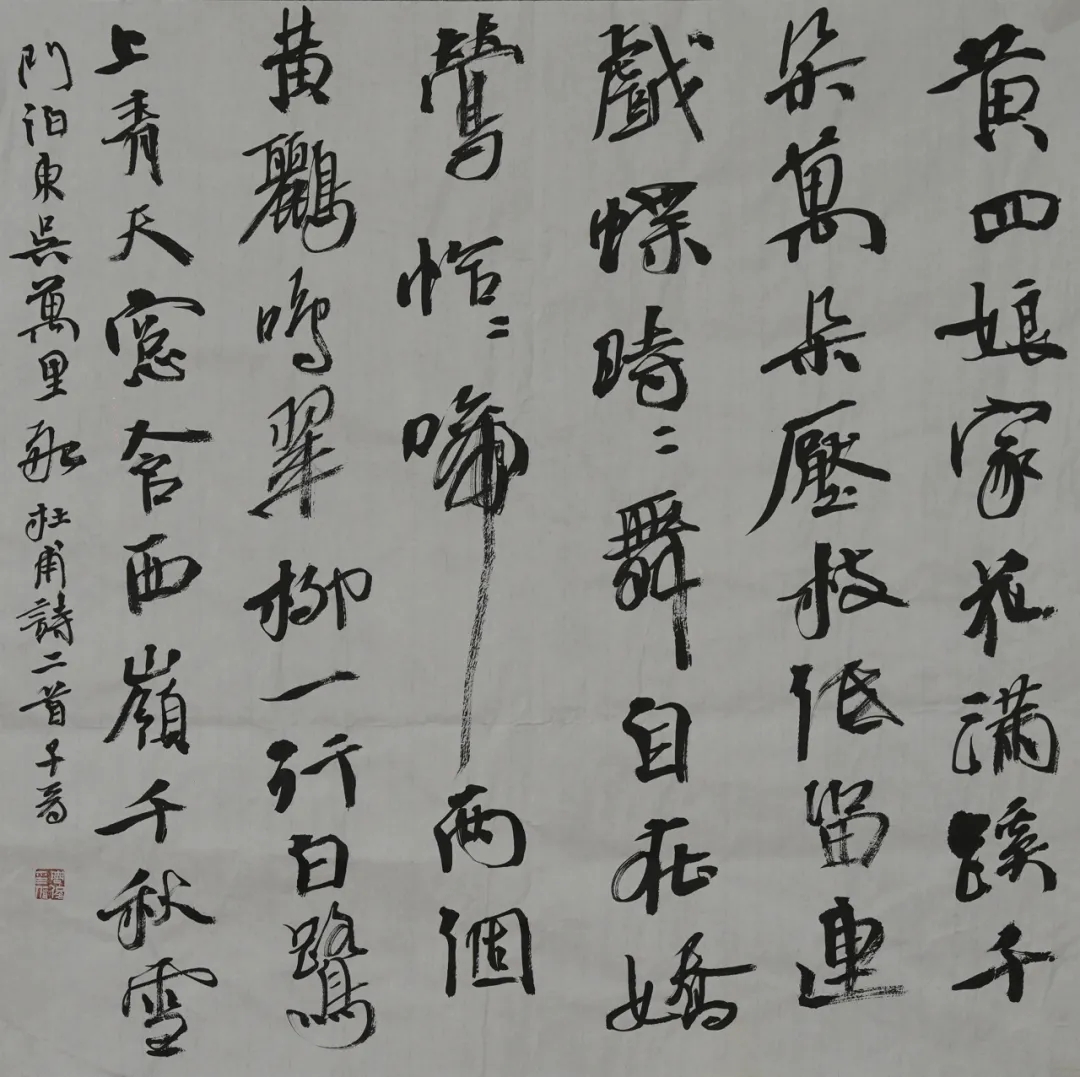 黄四娘家花满蹊千
朵萬朵壓枝低留連
戲蝶時〻舞自在嬌
鶯恰〻啼兩個
黄鸝鳴翠柳一行白鷺
上青天窓含西嶺千秋雪
門泊東吴萬里船杜甫詩二首子善